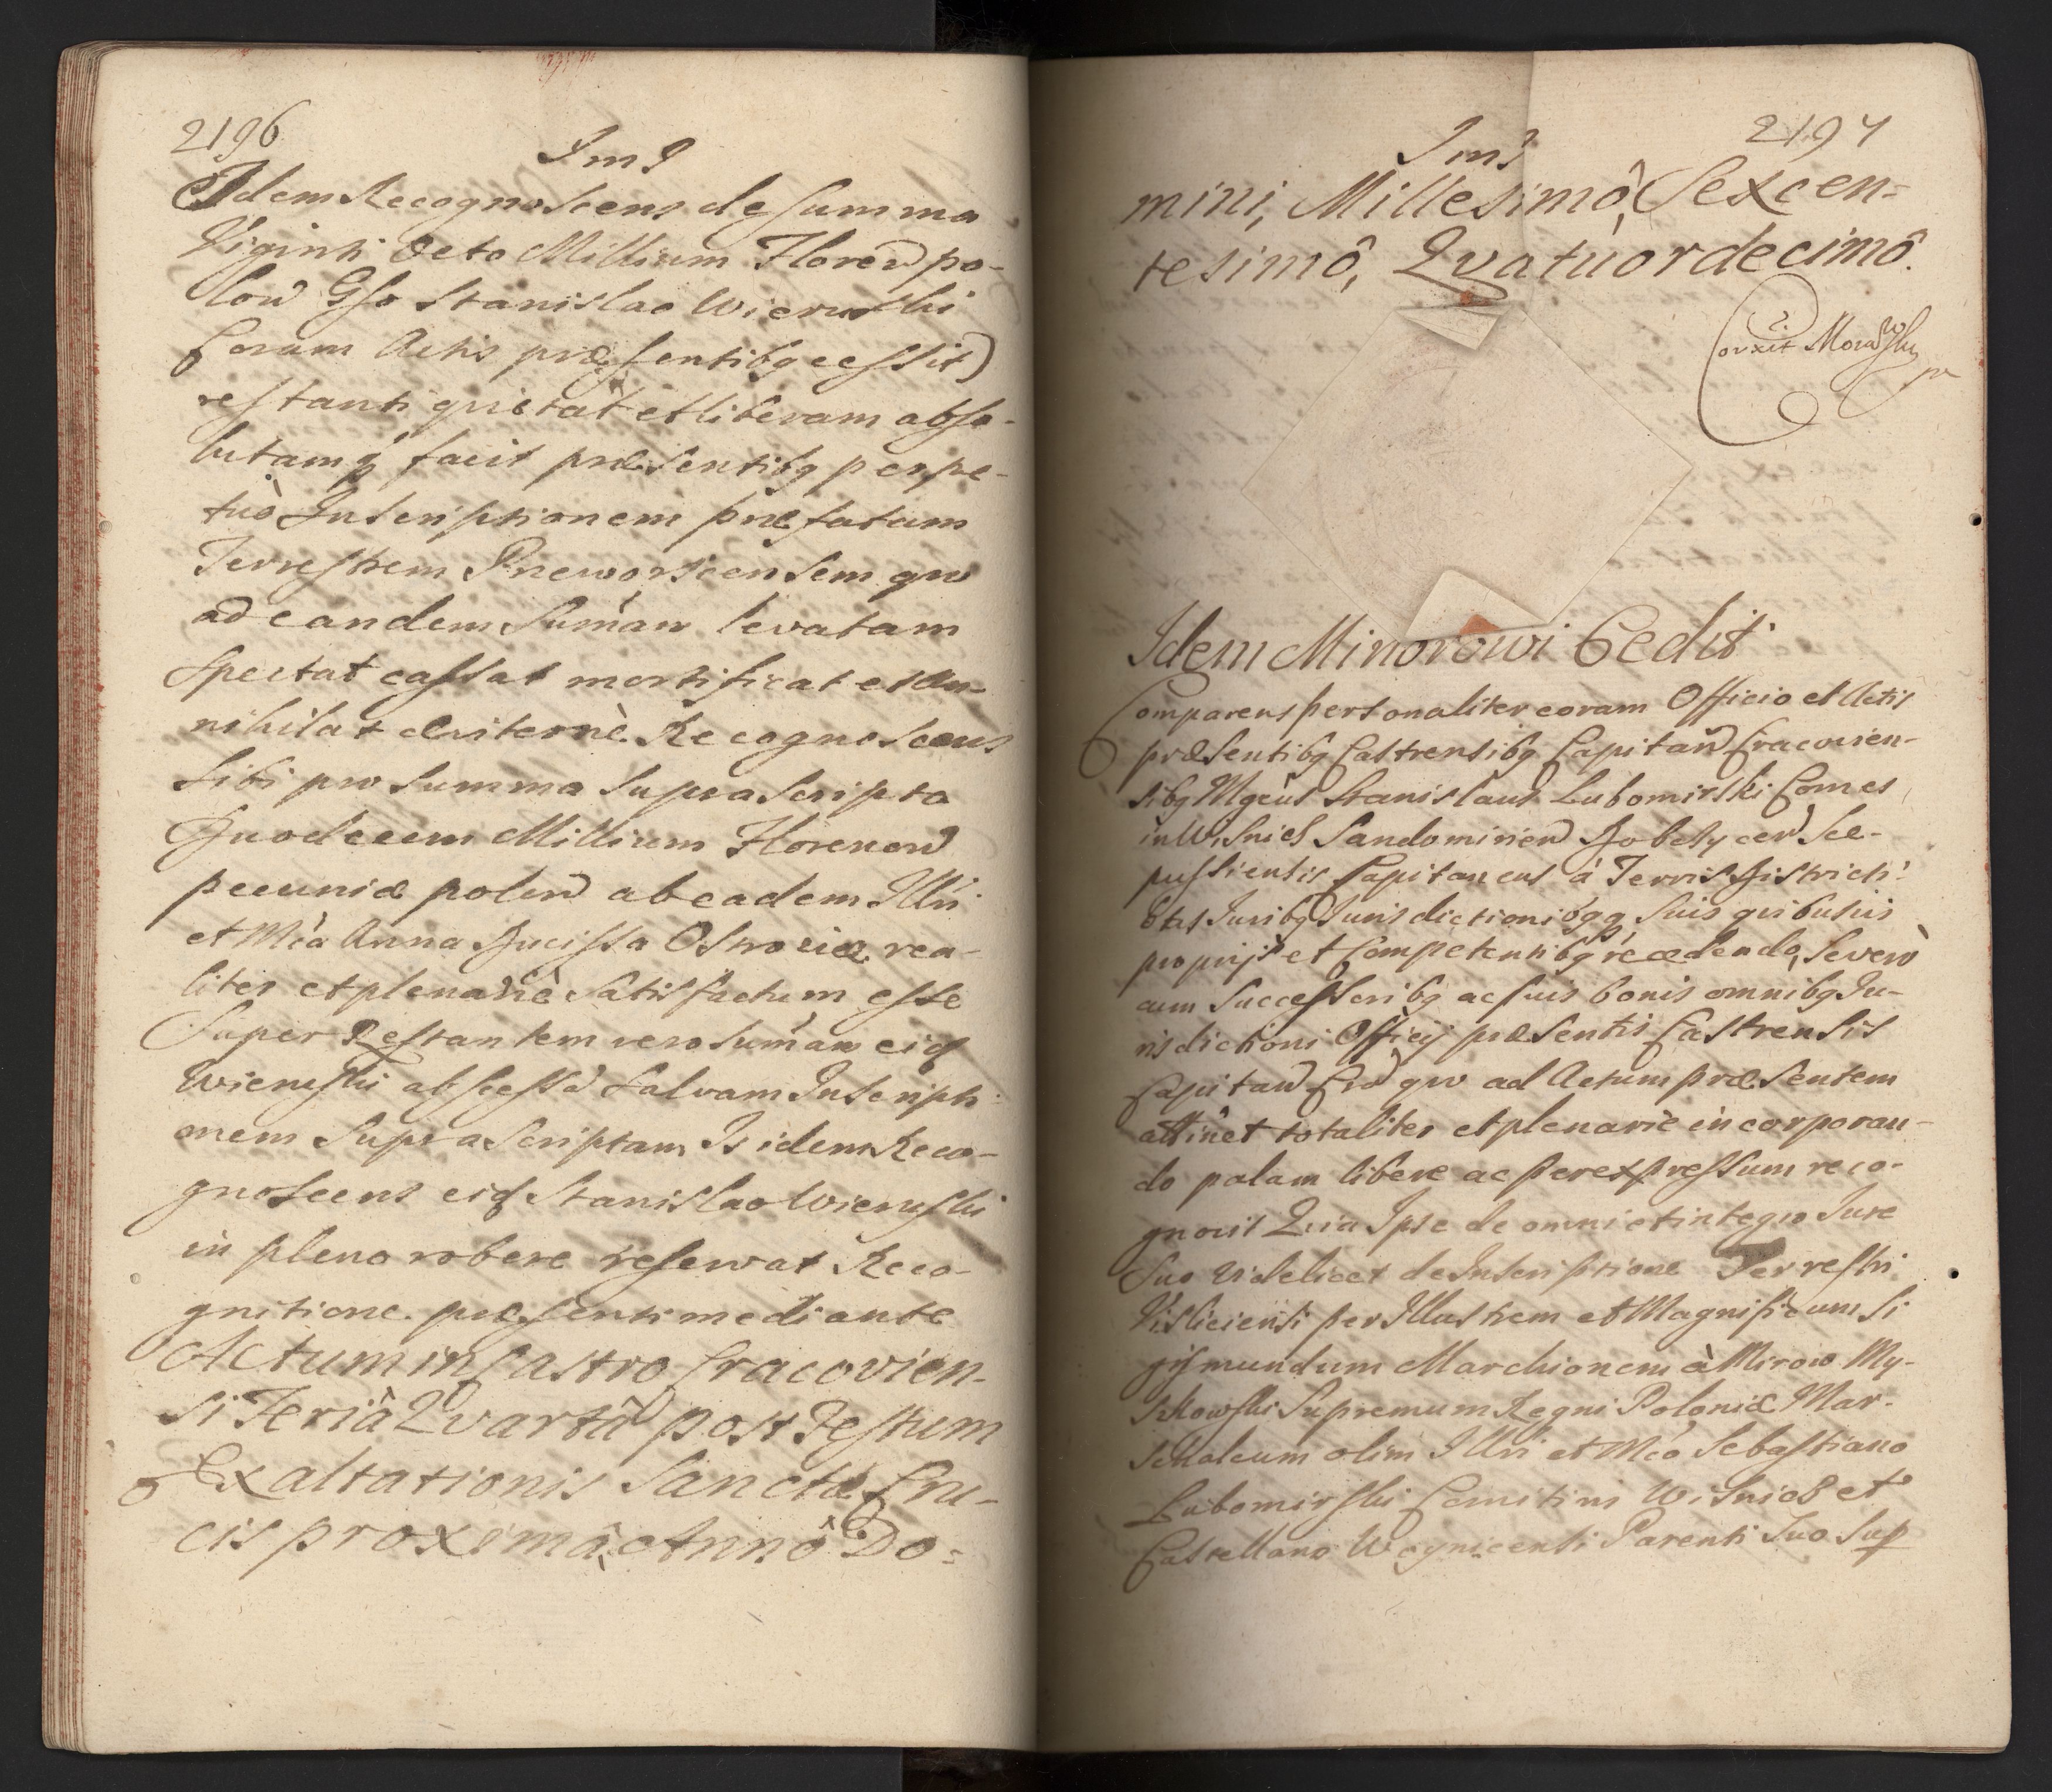 2196
Im I
Idem Recognoscens de summa
Viginti Octo Millium Floren po-
lon Gso Stanislao Wieruski
Coram Actis præsentibq cessit)
restanti quietat et liberam abso-
lutamq facit præsentibq perpe-
tuò Inscriptionem præfatam
Terrestrem Przeworscensem quo
ad eandem Sumam levatam
Spectat cassat mortificat et An-
nihilat æviternè Recognoscens
Sibi pro Summa Suprascripta
Duodecem Millium Florenon
pecuniæ polon ab eadem Illri
et Mca Anna Ducissa Ostrogiæ rea-
liter et plenariè Satisfactum esse
Super Restantem vero Sumam eidq
Wieruski ab Scessa Salvam Inscripti-
onem Supra Scriptam Is idem Reco-
gnoscens eidq Stanislao Wieruski
in pleno robere reservat Reco-
gnitione præsenti mediante
Actum in Castro Cracovien-
si Feriâ Qvartâ post Festum
Exaltationis Sanctæ Cru-
cis proximâ, Annô Do-
Im I
2197
mini, Millesimô, Sexcen-
tesimô, Qvatuordecimô.
Corxit
Idem Minorowi Cedit
Comparens personaliter coram Officio et Actis
præsentibq Castrensibq Capitan Cracovien-
sibq Mgcus Stanislaus Lubomirski Comes
in Wisnicz Sandomirien Dobczycen Sce-
pussiensis Capitaneus à Terris Districti-
btus Juribq Jurisdictionibqq Suis quibusvis
proprijs et Competentibq recedendo, Se vero
cum Successoribq ac suis bonis omnibq Ju-
risdictioni Officij præsentis Castrensis
Capitan Crac quo ad Actum præsentem
attinet totaliter et plenarie incorporan-
do palam libere ac per expressum reco-
gnovit Qvia Ipse de omni et integro Jure
Suo videlicet de Inscriptione Terrestri
Visliciensi per Illustrem et Magnificum Si
gismundum Marchionem à Mirow My-
szkowski Supremum Regni Poloniæ Mar-
schalcum olim Illri et Mco Sebastiano
Lubomirski Comiti in Wisnicz et
Castellano Woynicensi Parenti Suo Sup